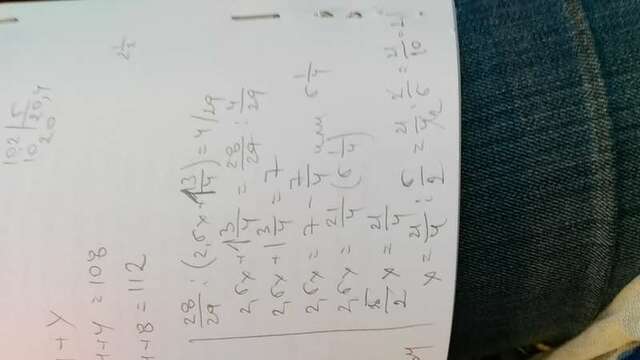 102 | 5
10 | 20,4
20
+ y
+ 4 = 108
+ 8 = 112
2 1/2
28/29 : (2,5x + 1 3/4) = 4/29
2,5x + 1 3/4 = 28/29 : 4/29
2,5x + 1 3/4 = 7
2,5x = 7 - 7/4 или 5 1/4
2,5x = 21/4 (5 1/4)
5/2 x = 21/4
x = 21/4 : 5/2 = 21/4 · 2/5 = 21/10 = 2